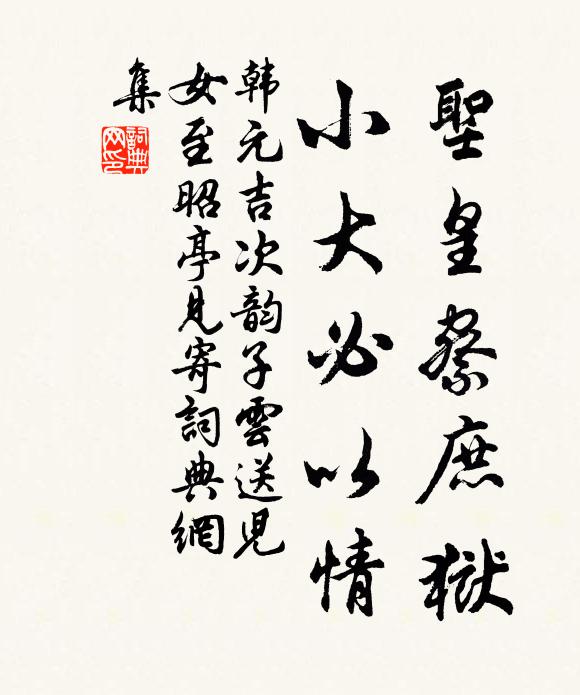 聖皇察庶獄
小大必以情
韩元吉次韵子雲送児
女至昭亭見寄詞典網
集
詞典
网印